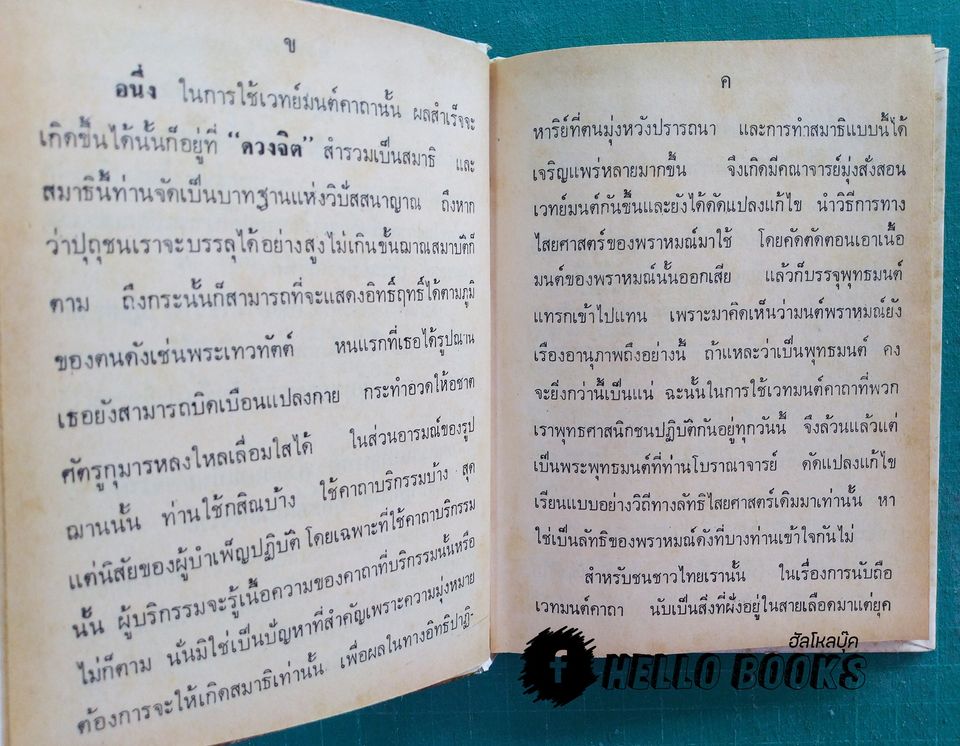 ข
อนึ่ง ในการใช้เวทย์มนต์คาถานั้น ผลสำเร็จจะ
เกิดขึ้นได้นั้นก็อยู่ที่ “ดวงจิต” สำรวมเป็นสมาธิ และ
สมาธินี้ท่านจัดเป็นบาทฐานแห่งวิปัสสนาญาณ ถึงหาก
ว่าปุถุชนเราจะบรรลุได้อย่างสูงไม่เกินขั้นฌาณสมาบัติก็
ตาม ถึงกระนั้นก็สามารถที่จะแสดงอิทธิ์ฤทธิ์ได้ตามภูมิ
ของตนดังเช่นพระเทวทัตต์ หนแรกที่เธอได้รูปฌาน
เธอยังสามารถบิดเบือนแปลงกาย กระทำอวดให้อชาต
ศัตรูกุมารหลงใหลเลื่อมใสได้ ในส่วนอารมณ์ของรูป
ฌานนั้น ท่านใช้กสิณบ้าง ใช้คาถาบริกรรมบ้าง สุด
แต่นิสัยของผู้บำเพ็ญปฏิบัติ โดยเฉพาะที่ใช้คาถาบริกรรม
นั้น ผู้บริกรรมจะรู้เนื้อความของคาถาที่บริกรรมนั้นหรือ
ไม่ก็ตาม นั่นมิใช่เป็นปัญหาที่สำคัญเพราะความมุ่งหมาย
ต้องการจะให้เกิดสมาธิเท่านั้น เพื่อผลในทางอิทธิปาฏิ-
ค
หาริย์ที่ตนมุ่งหวังปรารถนา และการทำสมาธิแบบนี้ได้
เจริญแพร่หลายมากขึ้น จึงเกิดมีคณาจารย์มุ่งสั่งสอน
เวทย์มนต์กันขึ้นและยังได้ดัดแปลงแก้ไข นำวิธีการทาง
ไสยศาสตร์ของพราหมณ์มาใช้ โดยคัดตัดตอนเอาเนื้อ
มนต์ของพราหมณ์นั้นออกเสีย แล้วก็บรรจุพุทธมนต์
แทรกเข้าไปแทน เพราะมาคิดเห็นว่ามนต์พราหมณ์ยัง
เรืองอานุภาพถึงอย่างนี้ ถ้าแหละว่าเป็นพุทธมนต์ คง
จะยิ่งกว่านี้เป็นแน่ ฉะนั้นในการใช้เวทมนต์คาถาที่พวก
เราพุทธศาสนิกชนปฏิบัติกันอยู่ทุกวันนี้ จึงล้วนแล้วแต่
เป็นพระพุทธมนต์ที่ท่านโบราณาจารย์ ดัดแปลงแก้ไข
เรียนแบบอย่างวิถีทางลัทธิไสยศาสตร์เดิมมาเท่านั้น หา
ใช่เป็นลัทธิของพราหมณ์ดังที่บางท่านเข้าใจกันไม่
สำหรับชนชาวไทยเรานั้น ในเรื่องการนับถือ
เวทมนต์คาถา นับเป็นสิ่งที่ฝั่งอยู่ในสายเลือดมาแต่ยุค
ฮัลโหลบุ๊ค
HELLO BOOKS